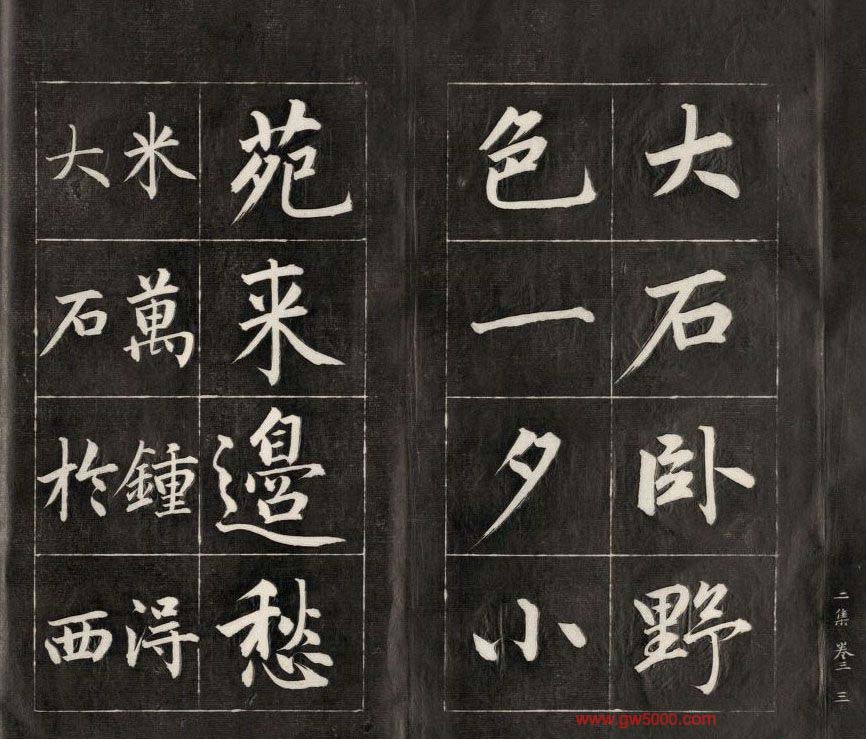 大石卧野
色一夕小
苑来邊愁
米萬鍾淂
大石於西
二集 卷三 三
www.gw5000.com